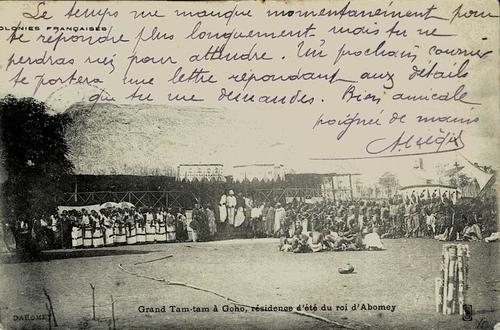 Le temps me manque momentanément pour
COLONIES FRANÇAISES
te répondre plus longuement mais tu ne
perdras rien pour attendre. Un prochain courrier
te portera une lettre répondant aux détails
que tu me demandes. Bien amicale
poignée de mains
Grand Tam-tam à Goho, résidence d'été du roi d'Abomey
DAHOMEY